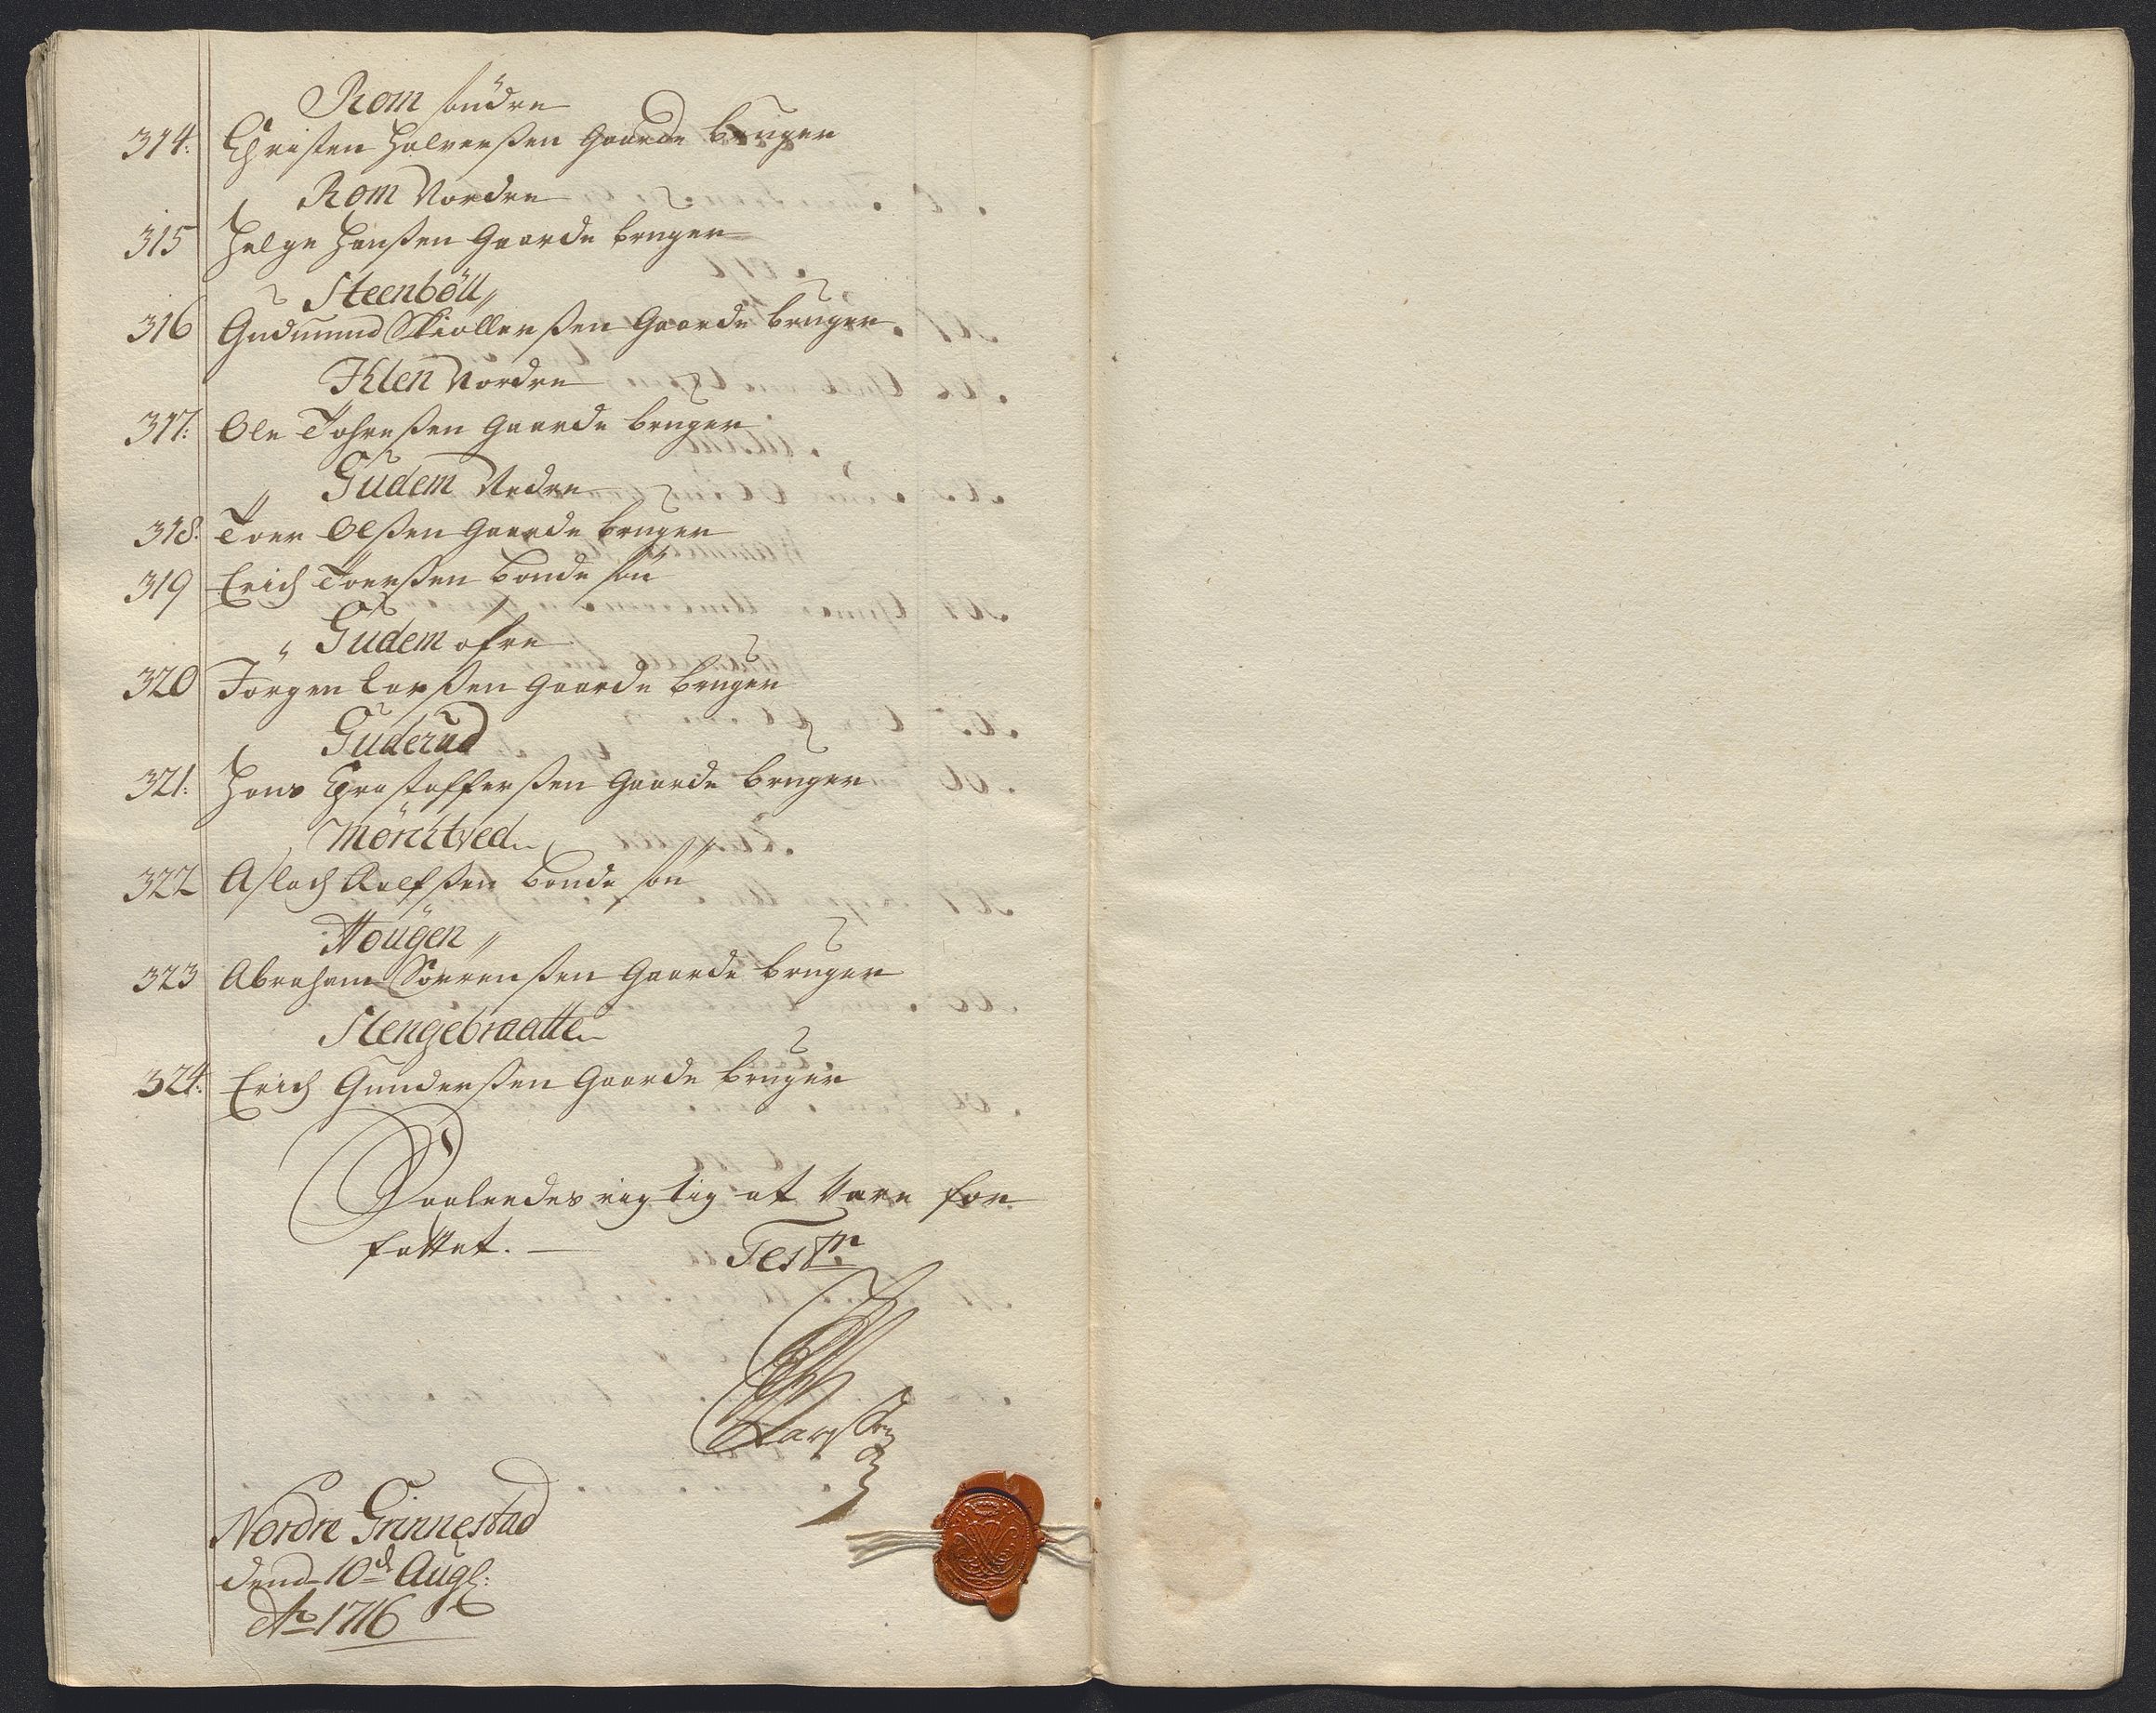 Rom söndre
314: Christen Halversßen Gaarde bruger
Rom Nordre
315 Helge Hansßen Gaarde bruger
Steenböll
316 Gudmund Skiöllersßen Gaarde bruger
Klen Nordre
317: Ole Tohresßen Gaarde bruger
Gudem Nedre
318: Toer Olsßen Gaarde bruger
319 Erich Toersßen bonde sön
Gudem ofre
320 Jörgen Larsßen Gaarde bruger
Guderud
321: Hans Christoffersßen Gaarde bruger
Mörchtved
322 Aslach Rolfsßen bonde sön
Hougen
323 Abraham Sörrensßen Gaarde bruger
Stengebraatte
324: Erich Gundersßen Gaarde bruger
Saaleedes rigtig at være for
fattet. Test:
Larssen
Nordre Grinnestad
dend 10d Aug:
Ao 1716